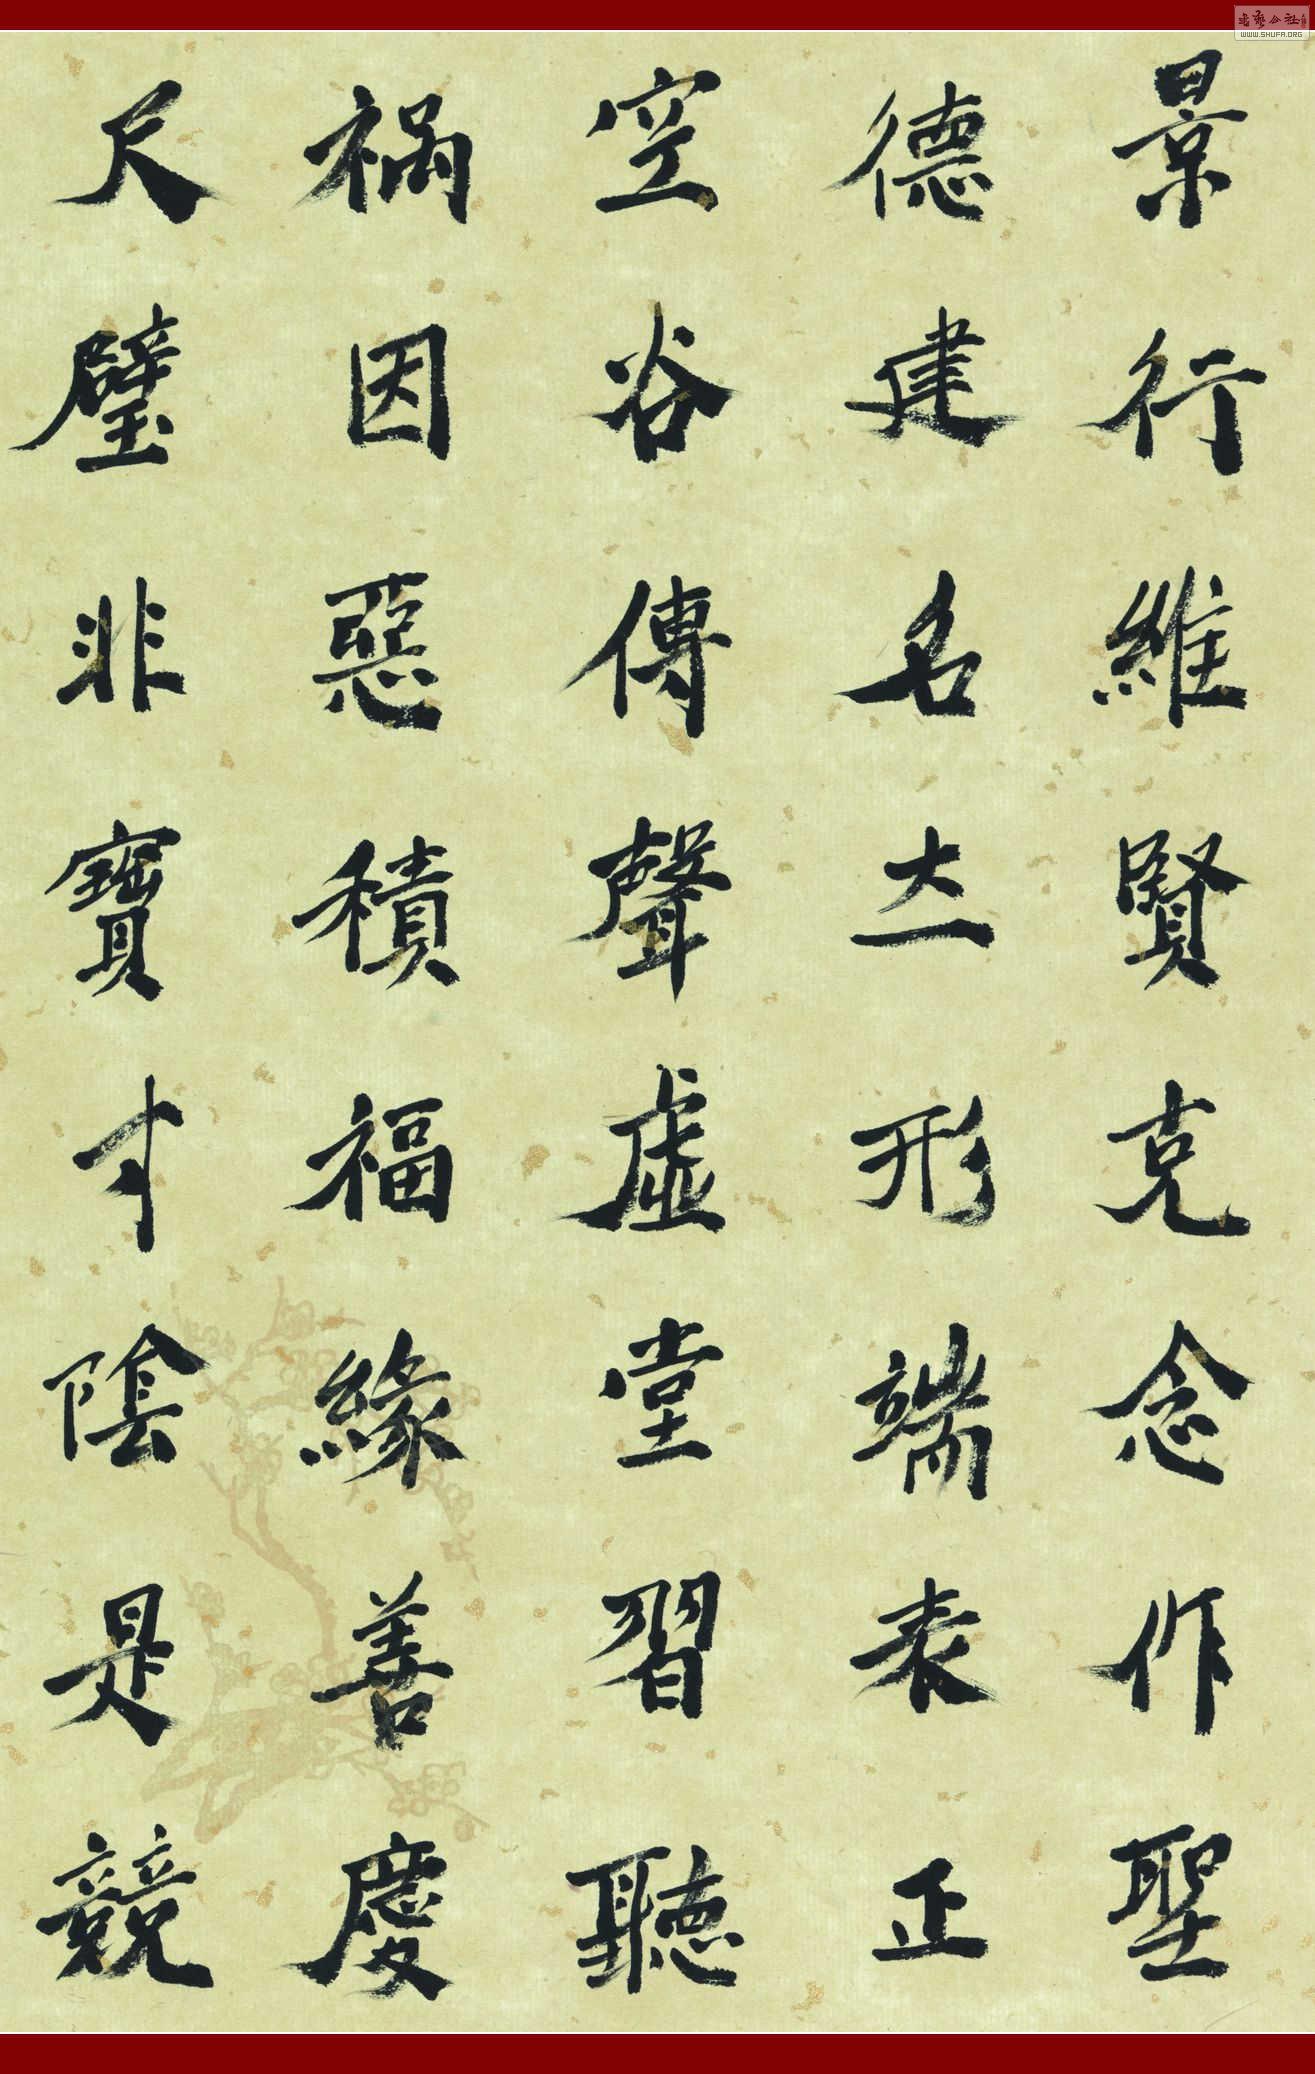 景行維賢克念作聖
德建名立形端表正
空谷傳聲虛堂習聽
禍因惡積福緣善慶
尺璧非寶寸陰是競
WWW.SHUFA.ORG